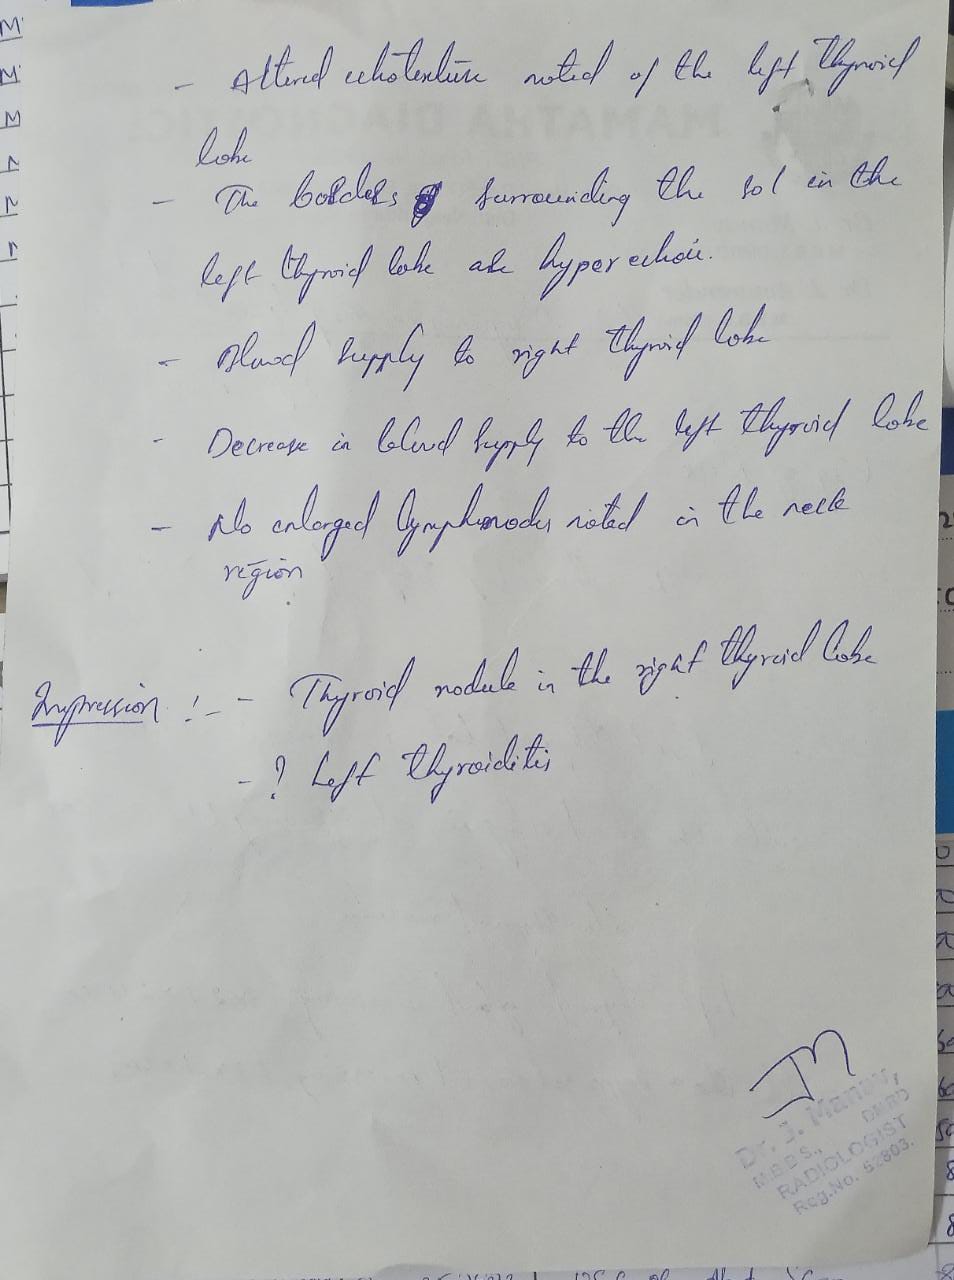 - Altered echotexture noted of the left thyroid
lobe
- The borders surrounding the sol in the
left thyroid lobe are hyperechoic.
- Blood supply to right thyroid lobe
- Decrease in blood supply to the left thyroid lobe
- No enlarged lymphnodes noted in the neck
region
Impression :- - Thyroid nodule in the right thyroid lobe
- ? Left thyroiditis
Dr. J.
MBBS., DMRD
RADIOLOGIST
Reg.No. 52803.